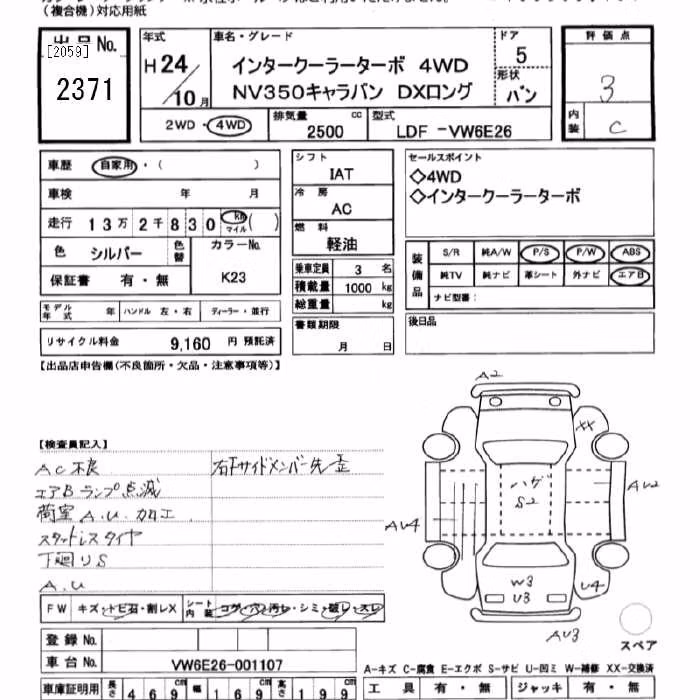 (複合機)対応用紙
出品No.
[2059]
2371
年式
H24/10月
車名・グレード
インタークーラーターボ 4WD
NV350キャラバン DXロング
ドア
5
形状
バン
評価点
3
内装
C
2WD・4WD
排気量 2500 cc
型式 LDF -VW6E26
車歴 自家用・( )
車検 年 月
走行 13万2千830 km マイル( )
色 シルバー 色替 カラーNo. K23
保証書 有・無
モデル年式 年 ハンドル 左・右 ディーラー・並行
リサイクル料金 9,160 円 預託済
シフト
IAT
冷房
AC
燃料
軽油
乗車定員 3 名
積載量 1000 kg
総重量 kg
書類期限
月 日
セールスポイント
◇4WD
◇インタークーラーターボ
装備品
S/R 純A/W P/S P/W ABS
純TV 純ナビ 革シート 外ナビ エアB
ナビ型番:
後日品
【出品店申告欄(不良箇所・欠品・注意事項等)】
【検査員記入】
AC不良
エアBランプ点滅
荷室 A.U.加工
スタットレスタイヤ
下廻りS
A.U
右下サイドメンバー先歪
A2
XX
ハゲ
S2
AU2
AU4
W3
U3
U4
AU3
スペア
FW キズ・トビ石・割レX シート内装 コゲ・穴・汚レ・シミ・破レ・スレ
登録No.
車台No. VW6E26-001107
車庫証明用 長さ 469cm 幅 169cm 高さ 199cm
A-キズ C-腐食 E-エクボ S-サビ U-凹ミ W-補修 XX-交換済
工具 有・無 ジャッキ 有・無